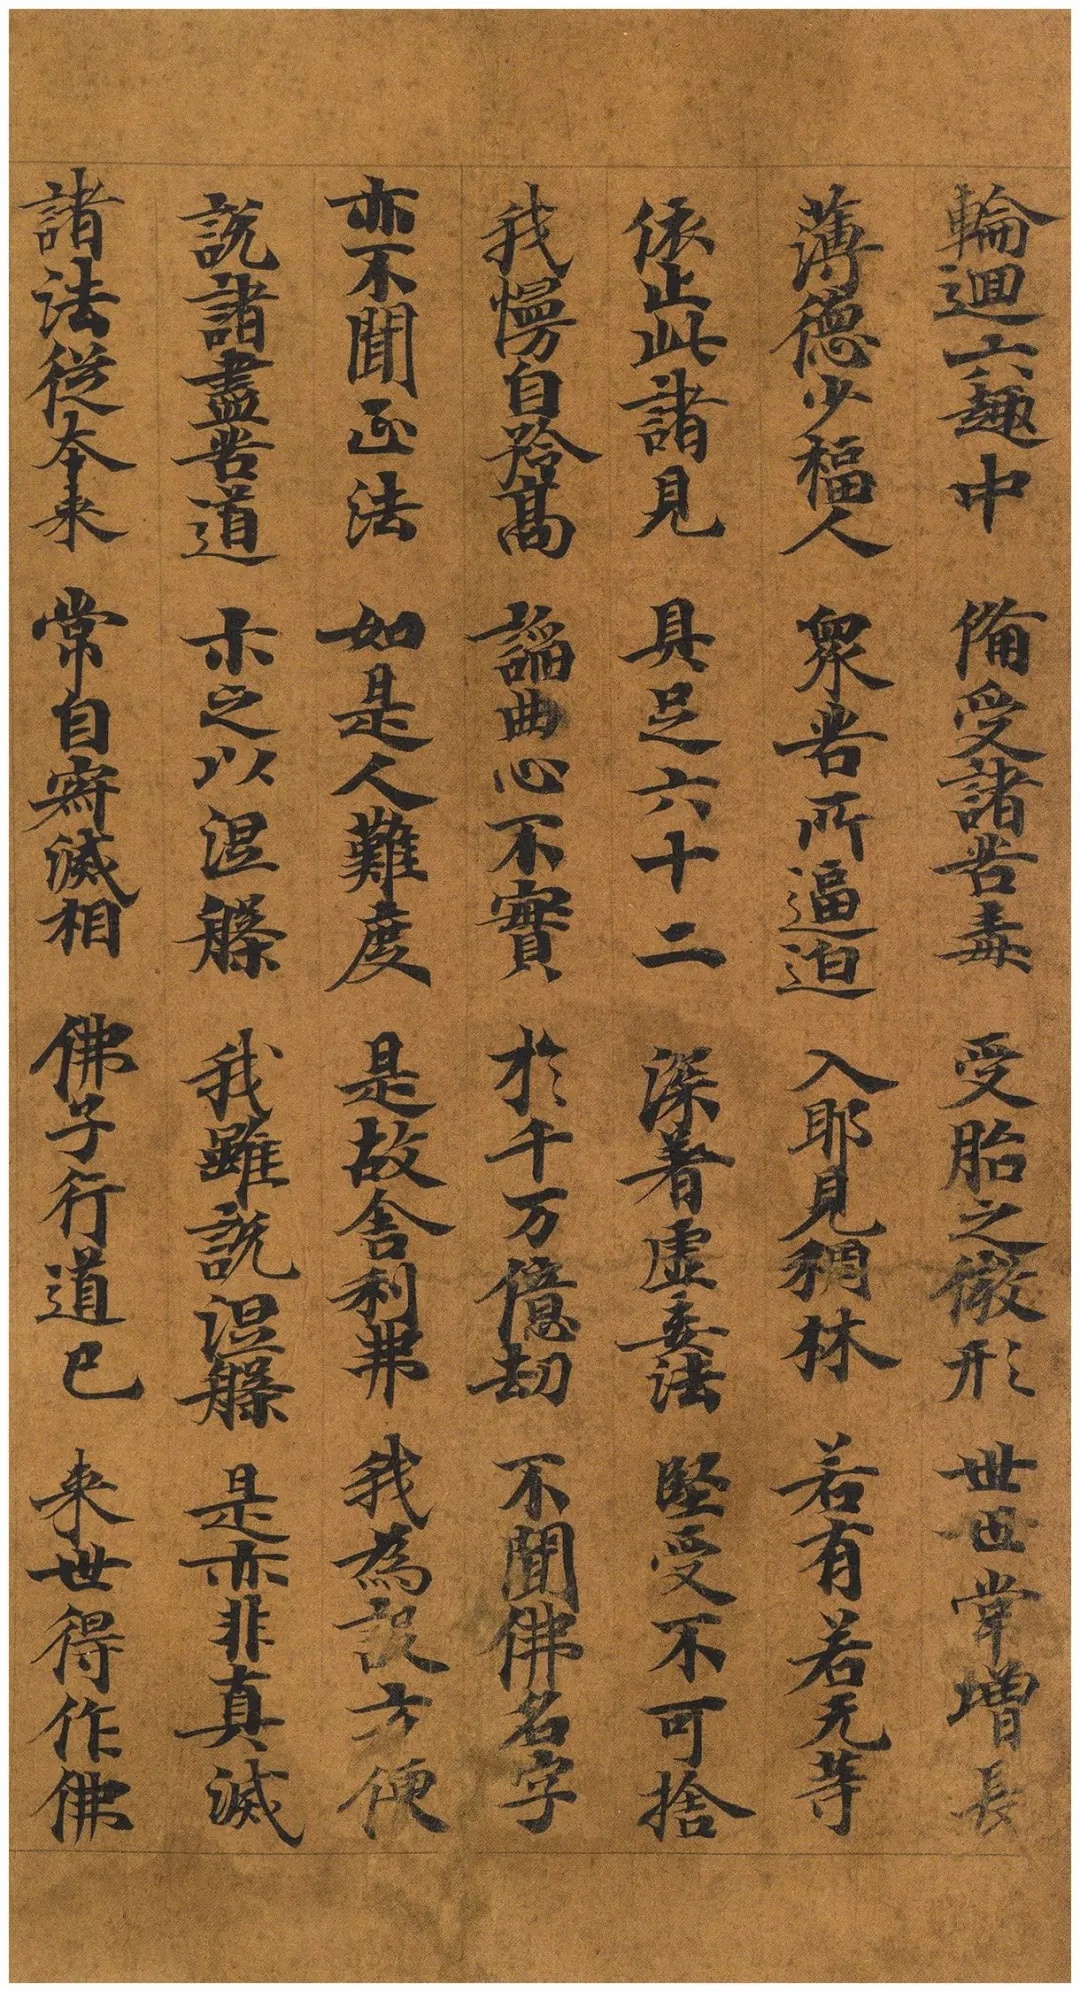 輪迴六趣中 備受諸苦毒 受胎之微形 世世常增長
薄德少福人 眾苦所逼迫 入耶見稠林 若有若无等
依止此諸見 具足六十二 深著虛妄法 堅受不可捨
我慢自矜高 諂曲心不實 於千万億劫 不聞佛名字
亦不聞正法 如是人難度 是故舍利弗 我為設方便
說諸盡苦道 示之以涅槃 我雖說涅槃 是亦非真滅
諸法從本来 常自寂滅相 佛子行道已 来世得作佛